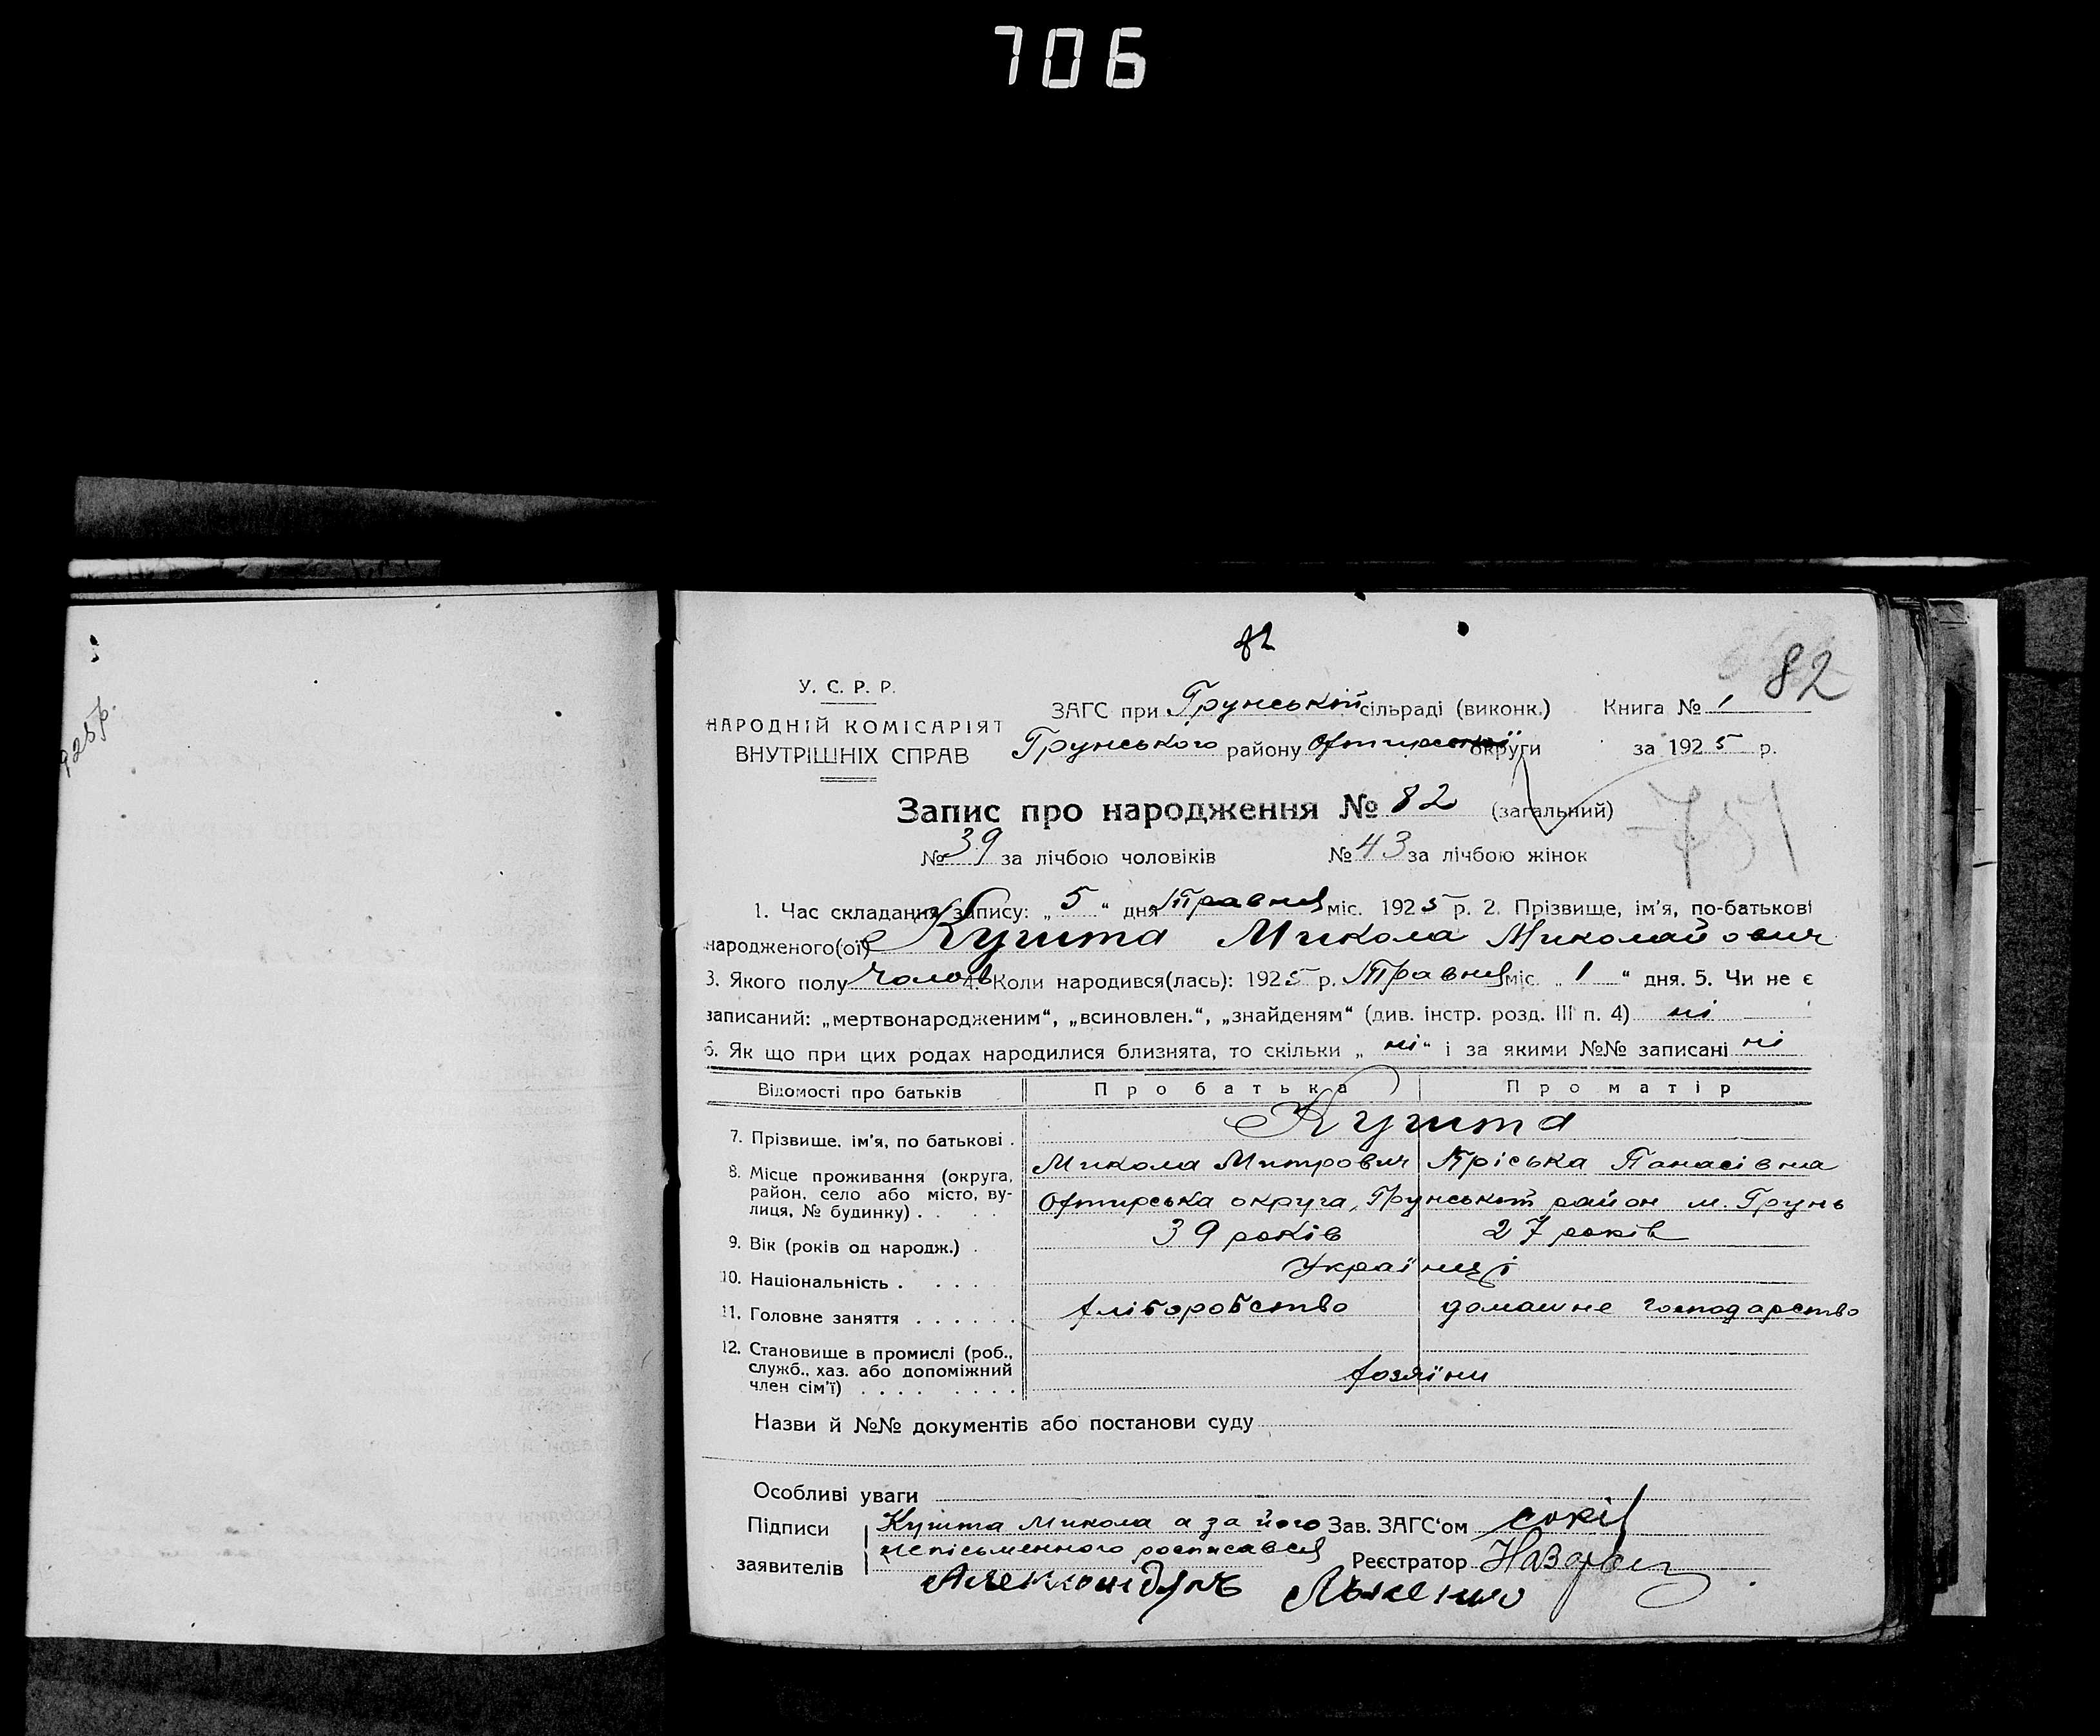 706
82
82
У. С. Р. Р.
НАРОДНІЙ КОМІСАРІЯТ
ВНУТРІШНІХ СПРАВ
ЗАГС при Грунській сільраді (виконк.) Книга № 1
Грунського району Охтирської округи за 1925 р.
925 р.
Запис про народження № 82 (загальний)
751
№ 39 за лічбою чоловіків № 43 за лічбою жінок
1. Час складання запису: „5“ дня Травня міс. 1925 р. 2. Прізвище, ім'я, по-батькові
народженого(ої) Кушта Микола Миколайович
3. Якого полу чолов 4. Коли народився(лась): 1925 р. Травня міс. „1“ дня. 5. Чи не є
записаний: „мертвонародженим“, „всиновлен.“, „знайденям“ (див. інстр. розд. III п. 4) ні
6. Як що при цих родах народилися близнята, то скільки „ні“ і за якими №№ записані ні
Відомості про батьків Про батька Про матір
Кушта
7. Прізвище, ім'я, по батькові . Микола Митрович Пріська Панасівна
8. Місце проживання (округа,
район, село або місто, ву-
лиця, № будинку) . . . . Охтирська округа, Грунський район м. Грунь
9. Вік (років од народж.) . 39 років 27 років
10. Національність . . . . . Українці
11. Головне заняття . . . . . . хліборобство домашне господарство
12. Становище в промислі (роб.,
служб., хаз. або допоміжний
член сім'ї) . . . . . . . . . хозяїни
Назви й №№ документів або постанови суду
Особливі уваги
Підписи Кушта Микола а за його Зав. ЗАГС'ом
заявителів неписьменного росписався Реєстратор
Александръ